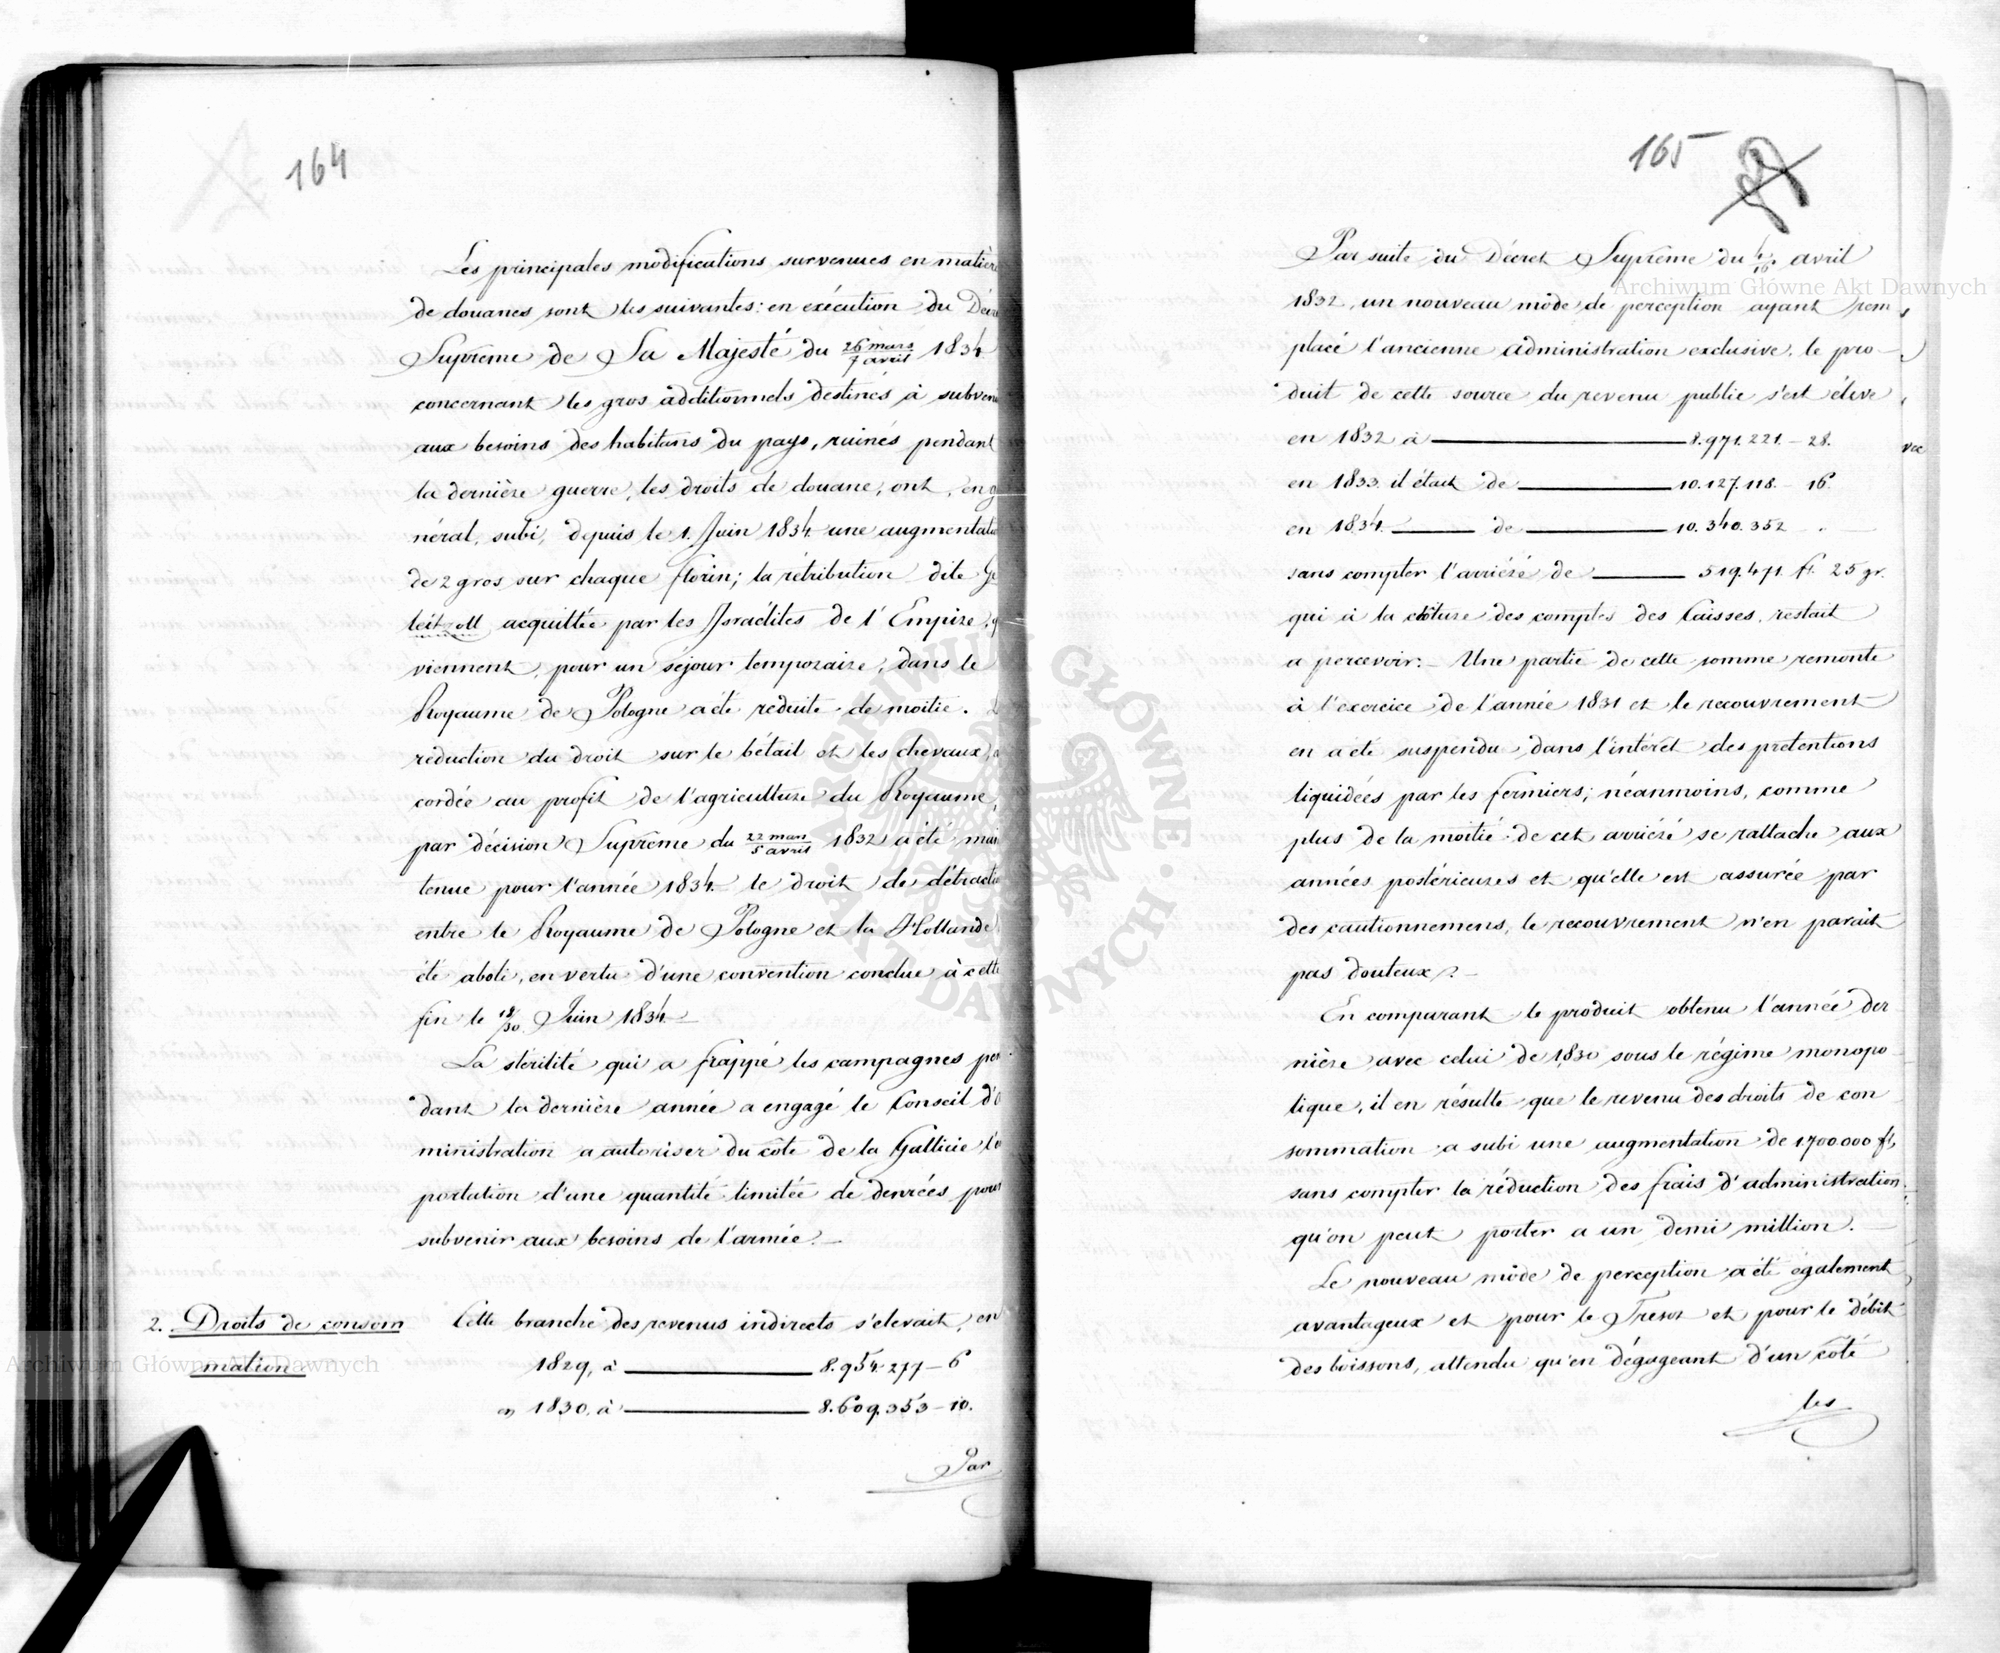 164
Les principales modifications survenues en matière
de douanes sont les suivantes: en exécution du
Suprême de Sa Majesté du 26 mars / 7 avril 1834
concernant les gros additionnels destinés à subveni
aux besoins des habitans du pays, ruinés pendant
la dernière guerre, les droits de douane, ont, en g
néral, subi, depuis le 1. Juin 1834 une augmentatio
de 2 gros sur chaque florin; la rétribution dite Ge
leitzoll acquittée par les Israélites de l'Empire, q
viennent, pour un séjour temporaire, dans le
Royaume de Pologne a été réduite de moitié.
réduction du droit sur le bétail et les chevaux, a
cordée au profit de l'agriculture du Royaume,
par décision Suprême du 22 mars / 5 avril 1832 a été main
tenue pour l'année 1834. le droit de détractio
entre le Royaume de Pologne et la Hollande
été aboli, en vertu d'une convention conclue à cette
fin le 18/30 Juin 1834.
La stérilité qui a frappé les campagnes pen
dant la dernière année a engagé le Conseil d'a
ministration a autoriser du côté de la Gallicie l'
portation d'une quantité limitée de denrées pour
subvenir aux besoins de l'armée.
2. Droits de consom
mation
Cette branche des revenus indirects s'elevait, en
1829, à 8.954.277 - 6
en 1830, à 8.609.353 - 10.
Par
165
Par suite du Décret Suprême du 4/16 avril
1832, un nouveau mode de perception ayant rem
placé l'ancienne administration exclusive, le pro-
duit de cette source du revenu public s'est élevé
en 1832 à 8.971.221. - 28.
en 1833. il était de 10.127.118. - 16.
en 1834. de 10.340.352 .
sans compter l'arriéré de 519.471. fl. 25 gr.
qui à la clôture des comptes des Caisses, restait
a percevoir. - Une partie de cette somme remonte
à l'exercice de l'année 1831 et le recouvrement
en a été suspendu dans l'intérêt des prétentions
liquidées par les fermiers; néanmoins, comme
plus de la moitié de cet arriéré se rattache aux
années postérieures et qu'elle est assurée par
des cautionnemens, le recouvrement n'en parait
pas douteux. -
En comparant le produit obtenu l'année der
nière avec celui de 1830 sous le régime monopo
lique, il en résulte que le revenu des droits de con
sommation a subi une augmentation de 1.700.000 fl,
sans compter la réduction des frais d'administration,
qu'on peut porter a un demi million.
Le nouveau mode de perception a été également
avantageux et pour le Trésor et pour le débit
des boissons, attendu qu'en dégageant d'un côté
les
Archiwum Główne Akt Dawnych
Archiwum Główne Akt Dawnych
ARCHIWUM GŁÓWNE · AKT DAWNYCH ·